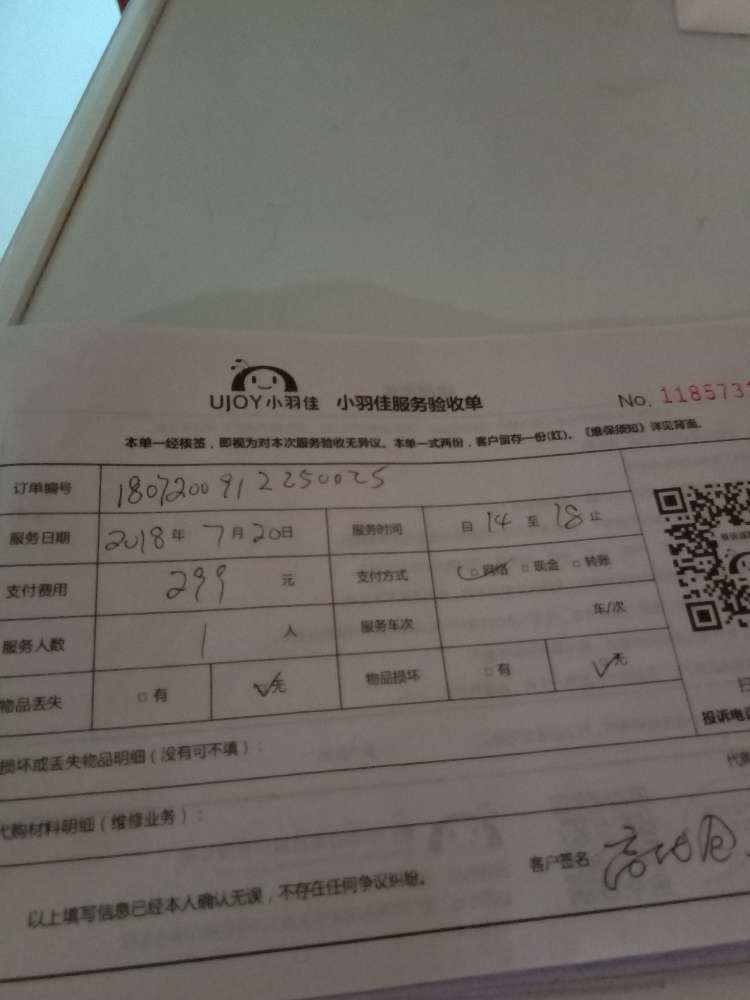 UJOY小羽佳 小羽佳服务验收单 No. 1185731
本单一经核签，即视为对本次服务验收无异议。本单一式两份，客户留存一份(红)。《维保须知》详见背面。
订单编号 1807200912250025
服务日期 2018年 7月20日 服务时间 自 14 至 18 止
支付费用 299 元 支付方式 □网络 □现金 □转账
服务人数 1 人 服务车次 车/次
物品丢失 □有 ☑无 物品损坏 □有 ☑无
投诉电
损坏或丢失物品明细（没有可不填）：
代购材料明细（维修业务）：
客户签名
以上填写信息已经本人确认无误，不存在任何争议纠纷。